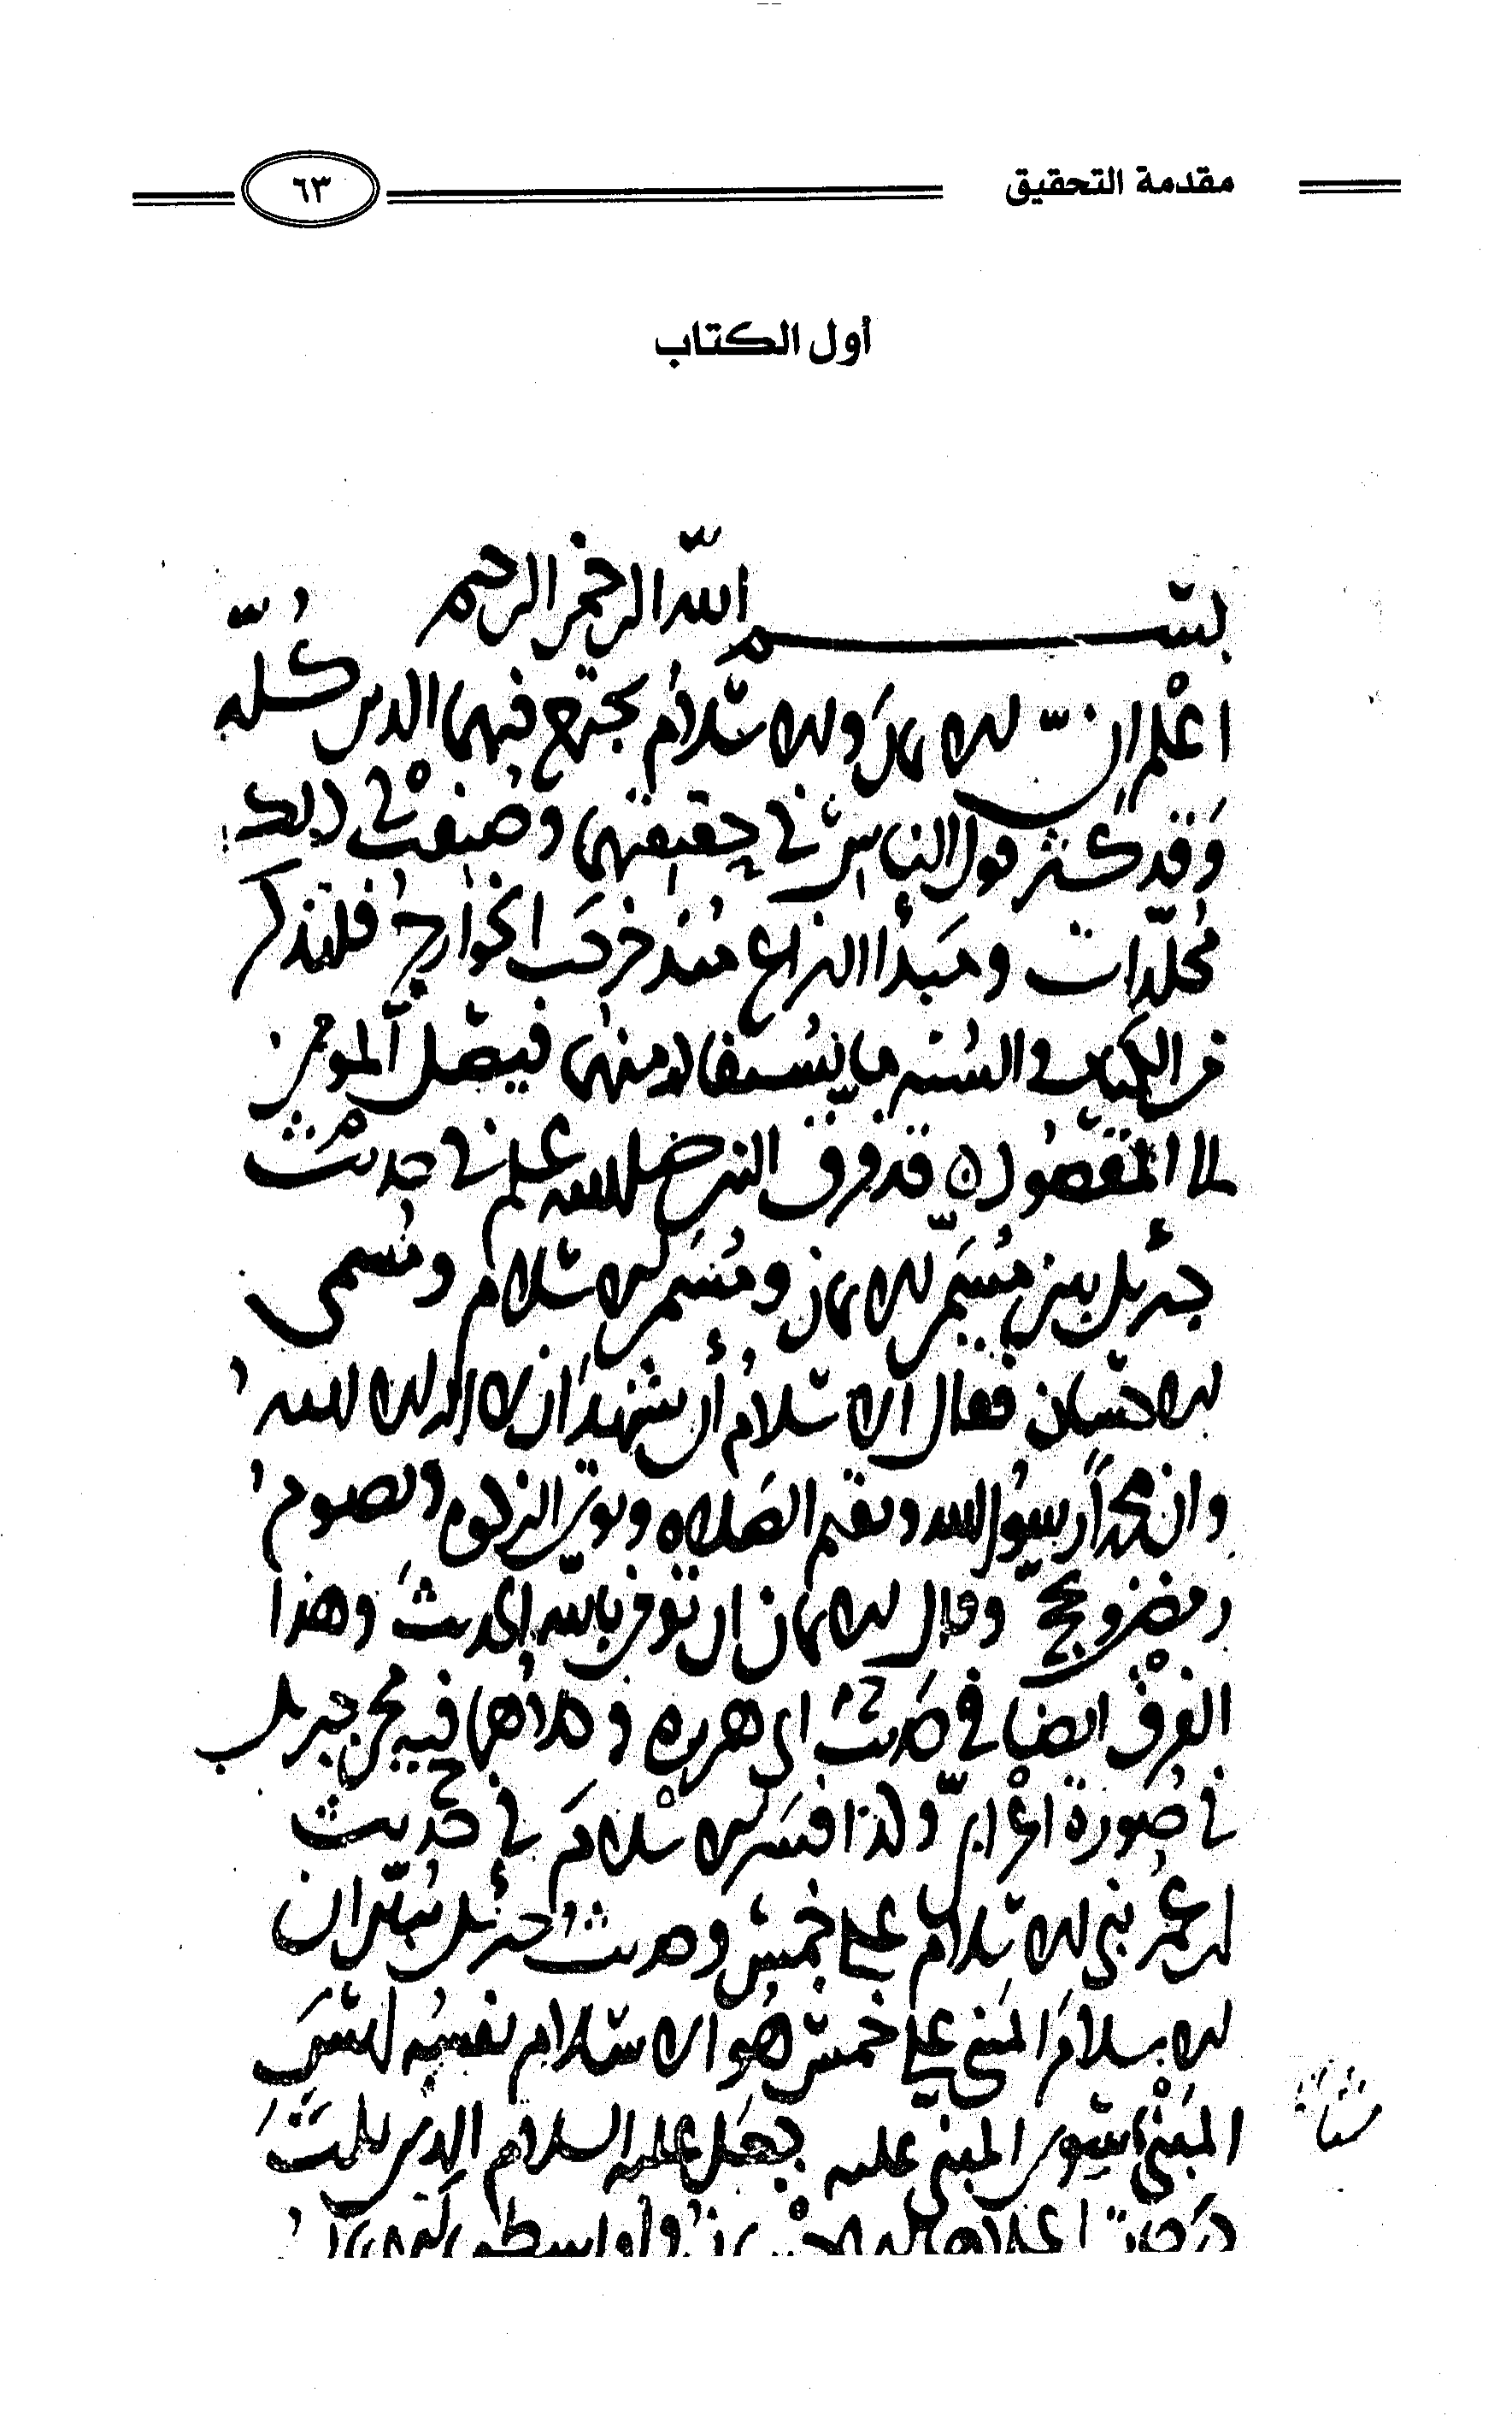 مقدمة التحقيق
٦٣
أول الكتاب
بسم الله الرحمن الرحيم
اعلم ان الايمان والاسلام يجتمع فيهما الدين كله
وقد كثر قول الناس في حقيقتهما وصنفت في ذلك
مجلدات ومبدأ النزاع منذ خرجت الخوارج فلنذكر
من الكتاب والسنه ما يستفاد منهما فيصل المومن
الى المقصود قد فرق النبي صلى الله عليه وسلم في حديث
جبريل بين مسمى الايمان ومسمى الاسلام ومسمى
الاحسان فقال الاسلام أن تشهد ان لا اله الا الله
وان محمدا رسول الله وتقيم الصلاه وتوتي الزكوه وتصوم
رمضان وتحج وقال الايمان ان تومن بالله الحديث وهذا
الفرق ايضا في حديث ابي هريره وكلاهما فيه مجي جبريل
في صورة اعرابي وكذا فسر الاسلام في حديث
ابن عمر بني الاسلام على خمس وحديث جبرئل يبين ان
الاسلام المبني على خمس هو الاسلام نفسه ليس
المبني سوى المبني عليه جعل عليه السلام الدين ثلث
درجات اعلاها الاحسان واوسطها الايمان